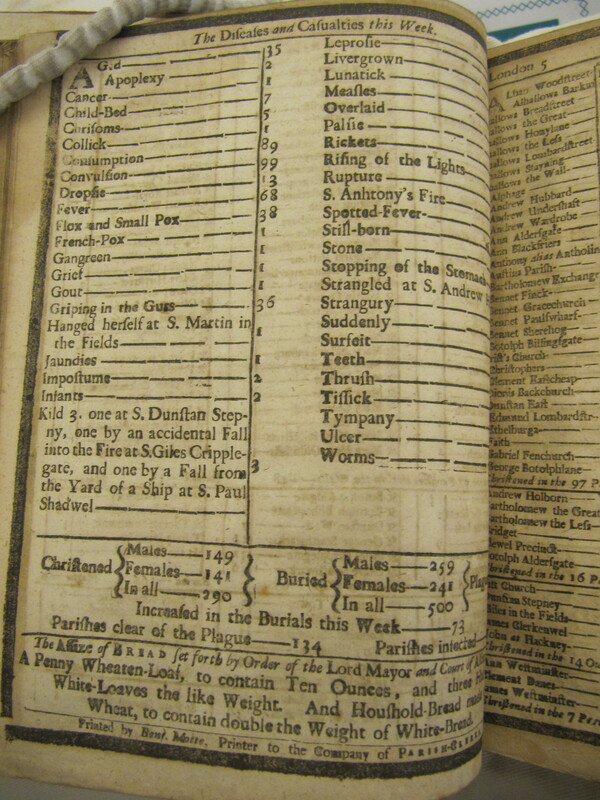 The Diseases and Casualties this Week.
AGed 35
Apoplexy 2
Cancer 1
Child-Bed 7
Chrisoms 5
Collick 1
Consumption 89
Convulsion 99
Dropsie 13
Fever 68
Flox and Small Pox 38
French-Pox 1
Gangreen 1
Grief 1
Gout 1
Griping in the Guts 36
Hanged herself at S. Martin in
the Fields 1
Jaundies 1
Impostume 2
Infants 2
Kild 3. one at S. Dunstan Step-
ny, one by an accidental Fall
into the Fire at S. Giles Cripple-
gate, and one by a Fall from 3
the Yard of a Ship at S. Paul
Shadwel
Leprosie
Livergrown
Lunatick
Measles
Overlaid
Palsie
Rickets
Rising of the Lights
Rupture
S. Anhtony's Fire
Spotted-Fever
Still-born
Stone
Stopping of the Stomach
Strangled at S. Andrew
Strangury
Suddenly
Surfeit
Teeth
Thrush
Tissick
Tympany
Ulcer
Worms
Christened Males 149
Females 141
In all 290
Buried Males 259
Females 241
In all 500
Increased in the Burials this Week 73
Parishes clear of the Plague 134 Parishes infected
The Assize of BREAD set forth by Order of the Lord Mayor and Court of
A Penny Wheaten-Loaf, to contain Ten Ounces, and three
White-Loaves the like Weight. And Houshold-Bread
Wheat, to contain double the Weight of White-Bread.
Printed by Benj. Motte, Printer to the Company of PARISH-CLERKS
London 5
Alban Woodstreet
Alhallows Barkin
allows Breadstreet
allows the Great
allows Honylane
allows the Less
allows Lombardstreet
allows Stayning
allows the Wall
Alphage
Andrew Hubbard
Andrew Undershaft
Andrew Wardrobe
Ann Aldersgate
Ann Blackfriers
Anthony alias Antholin
Austins Parish
Bartholomew Exchange
Bennet Finck
Bennet Gracechurch
Bennet Paulswharf
Bennet Sherehog
Botolph Billingsgate
Christ's Church
Christophers
Clement Eastcheap
Dionis Backchurch
Dunstan East
Edmund Lombardstr
Ethelburga
Faith
Gabriel Fenchurch
George Botolphlane
Christened in the 97 P
Andrew Holborn
Bartholomew the Great
Bartholomew the Less
Bridget
Bridewel Precinct
Botolph Aldersgate
Christened in the 16 P
Christ Church
Dunstan Stepney
Giles in the Fields
James Clerkenwel
John at Hackney
Christened in the 14 Ou
Ann Westminster
Clement Danes
James Westminster
Christened in the 7 Par